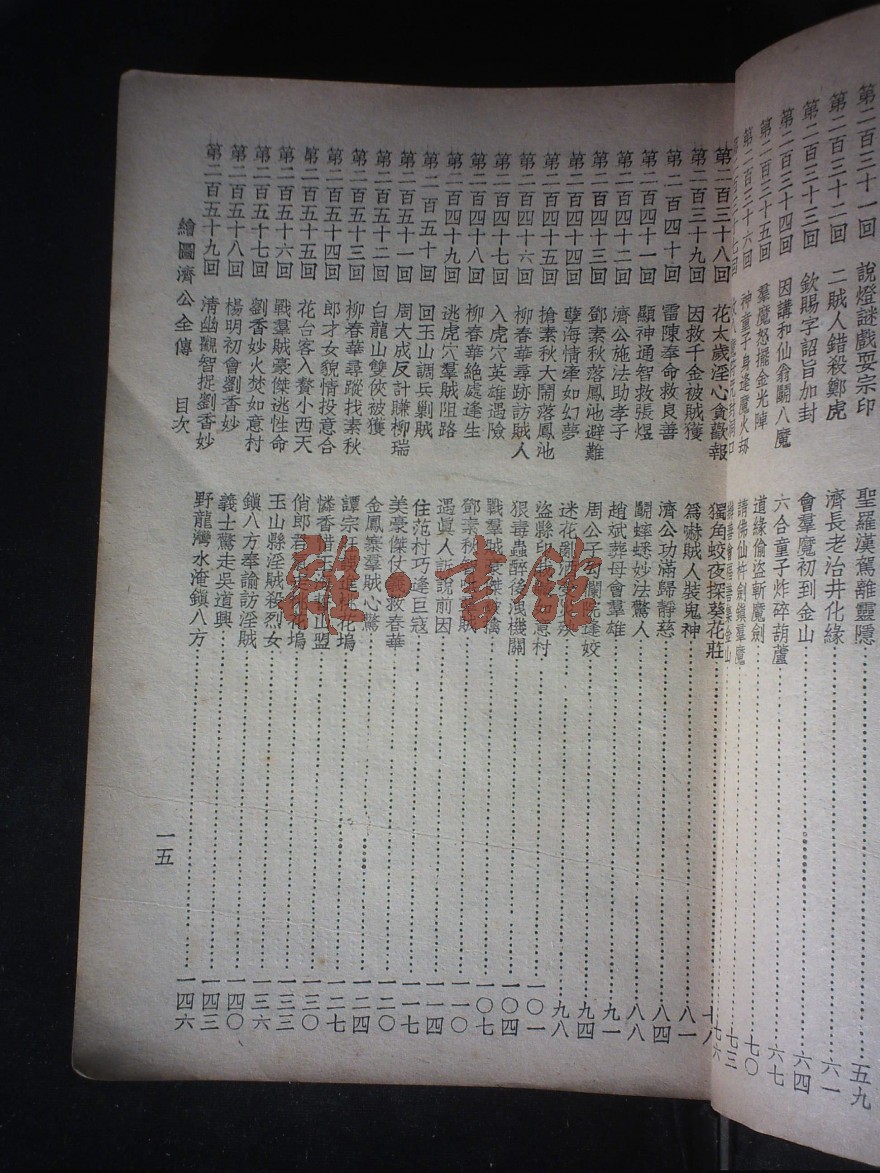 第二百三十一回 說燈謎戲耍宗印 聖羅漢駕離靈隱 五九
第二百三十二回 二賊人錯殺鄭虎 濟長老治井化緣 六一
第二百三十三回 欽賜字詔旨加封 會羣魔初到金山 六四
第二百三十四回 因講和仙翁鬭八魔 六合童子炸碎葫蘆 六七
第二百三十五回 羣魔怒擺金光陣 道緣偷盜斬魔劍 七〇
第二百三十六回 神童子身逢魔火刼 請佛仙杵劍鎮羣魔 七三
七六
第二百三十八回 花太歲淫心貪歡報 獨角蛟夜探葵花莊 七八
第二百三十九回 因救千金被賊獲 爲嚇賊人裝鬼神 八一
第二百四十回 雷陳奉命救良善 濟公功滿歸靜慈 八四
第二百四十一回 顯神通智救張煜 鬭蟋蟀妙法驚人 八八
第二百四十二回 濟公施法助孝子 趙斌葬母會羣雄 九一
第二百四十三回 鄧素秋落鳳池避難 周公子勾闌院逢姣 九四
第二百四十四回 孽海情牽如幻夢 迷花亂酒 九八
第二百四十五回 搶素秋大鬧落鳳池 盜縣印 如意村 一〇一
第二百四十六回 柳春華尋跡訪賊人 狠毒蟲醉後洩機關 一〇四
第二百四十七回 入虎穴英雄遇險 戰羣賊豪傑 擒 一〇七
第二百四十八回 柳春華絕處逢生 鄧素秋 賊 一一〇
第二百四十九回 逃虎穴羣賊阻路 遇眞人訴說前因 一一四
第二百五十回 回玉山調兵剿賊 住范村巧逢巨寇 一一七
第二百五十一回 周大成反計賺柳瑞 美豪傑仗義救春華 一二〇
第二百五十二回 白龍山雙俠被獲 金鳳寨羣賊心驚 一二四
第二百五十三回 柳春華尋蹤找素秋 譚宗旺 桃花塢 一二七
第二百五十四回 郎才女貌情投意合 憐香惜玉 山盟 一三〇
第二百五十五回 花台客入贅小西天 俏郎君 花塢 一三三
第二百五十六回 戰羣賊豪傑逃性命 玉山縣淫賊殺烈女 一三六
第二百五十七回 劉香妙火焚如意村 鎮八方奉諭訪淫賊 一四〇
第二百五十八回 楊明初會劉香妙 義士驚走吳道興 一四三
第二百五十九回 清幽觀智捉劉香妙 野龍灣水淹鎮八方 一四六
繪圖濟公全傳 目次 一五
雜·書館